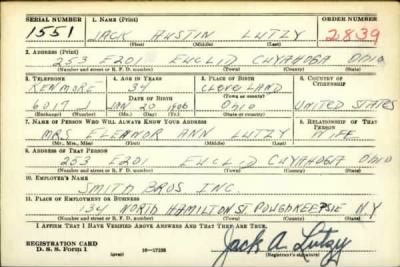 SERIAL NUMBER 1. NAME (Print) ORDER NUMBER
1551 JACK AUSTIN LUTZY 2839
(First) (Middle) (Last)
2. ADDRESS (Print)
253 E201 EUCLID CUYAHOGA OHIO
(Number and street or R. F. D. number) (Town) (County) (State)
3. TELEPHONE 4. AGE IN YEARS 5. PLACE OF BIRTH 6. COUNTRY OF CITIZENSHIP
KENMORE 34 CLEVELAND
DATE OF BIRTH (Town or county)
6017 J JAN 20 1906 OHIO UNITED STATES
(Exchange) (Number) (Mo.) (Day) (Yr.) (State or country)
7. NAME OF PERSON WHO WILL ALWAYS KNOW YOUR ADDRESS 8. RELATIONSHIP OF THAT PERSON
MRS ELEANOR ANN LUTZY WIFE
(Mr., Mrs., Miss) (First) (Middle) (Last)
9. ADDRESS OF THAT PERSON
253 E201 EUCLID CUYAHOGA OHIO
(Number and street or R. F. D. number) (Town) (County) (State)
10. EMPLOYER'S NAME
SMITH BROS INC.
11. PLACE OF EMPLOYMENT OR BUSINESS
134 NORTH HAMILTON ST POUGHKEEPSIE NY
(Number and street or R. F. D. number) (Town) (County) (State)
I AFFIRM THAT I HAVE VERIFIED ABOVE ANSWERS AND THAT THEY ARE TRUE.
REGISTRATION CARD
D. S. S. Form 1 16—17105 Jack A. Lutzy
(Registrant's signature)